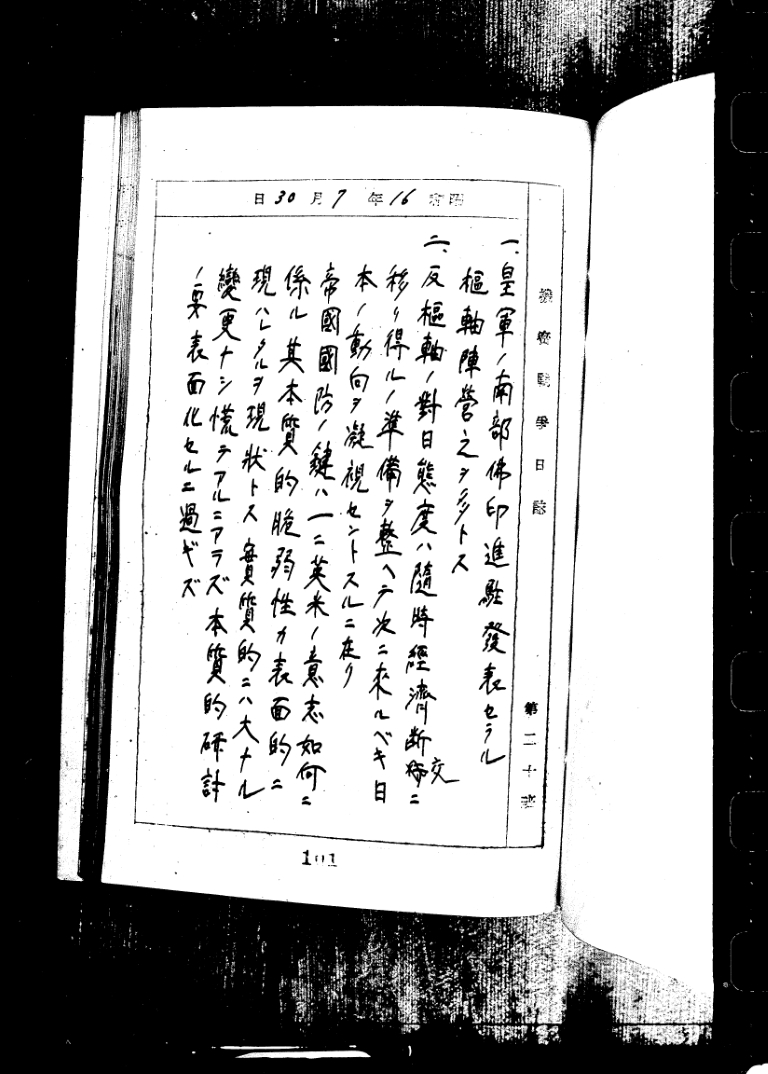 機密戰爭日誌
第二十
昭和16年7月30日
一、皇軍ノ南部佛印進駐發表セラル
樞軸陣營之ヲ多トス
二、反樞軸ノ對日態度ハ隨時經濟斷交ニ
移リ得ルノ準備ヲ整ヘテ次ニ來ルベキ日
本ノ動向ヲ凝視セントスルニ在リ
帝國國防ノ鍵ハ一ニ英米ノ意志如何ニ
係ル其本質的脆弱性カ表面的ニ
現ハレタルヲ現狀トス實質的ニハ大ナル
變更ナシ慌テアルニアラズ本質的硏討
ノ要表面化セルニ過ギズ
101